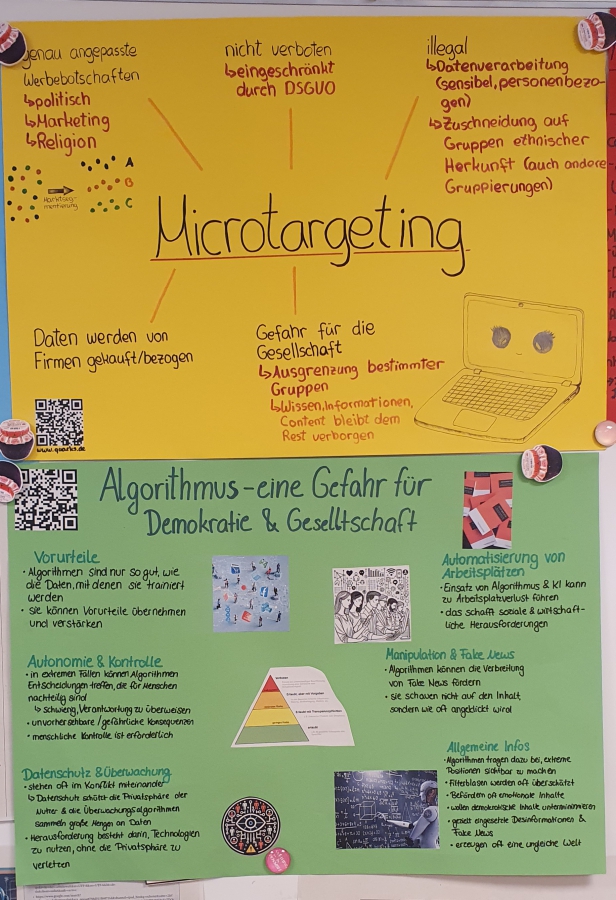 genau angepasste
Werbebotschaften
↳politisch
↳Marketing
↳Religion
A
B
C
Marktseg-
mentierung
nicht verboten
↳eingeschränkt
durch DSGVO
illegal
↳Datenverarbeitung
(sensibel, personenbezo-
gen)
↳Zuschneidung auf
Gruppen ethnischer
Herkunft (auch andere
Gruppierungen)
Microtargeting
Daten werden von
Firmen gekauft/bezogen
www.quarks.de
Gefahr für die
Gesellschaft
↳Ausgrenzung bestimmter
Gruppen
↳Wissen, Informationen,
Content bleibt dem
Rest verborgen
Algorithmus - eine Gefahr für
Demokratie & Geselltschaft
Vorurteile
• Algorithmen sind nur so gut, wie
die Daten, mit denen sie trainiert
werden
• sie können Vorurteile übernehmen
und verstärken
Automatisierung von
Arbeitsplätzen
• Einsatz von Algorithmus & KI kann
zu Arbeitsplatzverlust führen
• das schafft soziale & wirtschaft-
liche Herausforderungen
Autonomie & Kontrolle
• in extremen Fällen können Algorithmen
Entscheidungen treffen, die für Menschen
nachteilig sind
↳ schwierig, Verantwortung zu überweisen
• unvorhersehbare / gefährliche Konsequenzen
• menschliche Kontrolle ist erforderlich
Manipulation & Fake News
• Algorithmen können die Verbreitung
von Fake News fördern
• sie schauen nicht auf den Inhalt,
sondern wie oft angeklickt wird
Datenschutz & Überwachung
• stehen oft im Konflikt miteinander
↳ Datenschutz schützt die Privatsphäre der
Nutzer & die Überwachungsalgorithmen
sammeln große Mengen an Daten
• Herausforderung besteht darin, Technologien
zu nutzen, ohne die Privatsphäre zu
verletzen
Allgemeine Infos
• Algorithmen tragen dazu bei, extreme
Positionen sichtbar zu machen
• Filterblasen werden oft überschätzt
• Befördern oft emotionale Inhalte
• wollen demokratische Inhalte unterminieren
• gezielt eingesetzte Desinformationen &
Fake News
• erzeugen oft eine ungleiche Welt